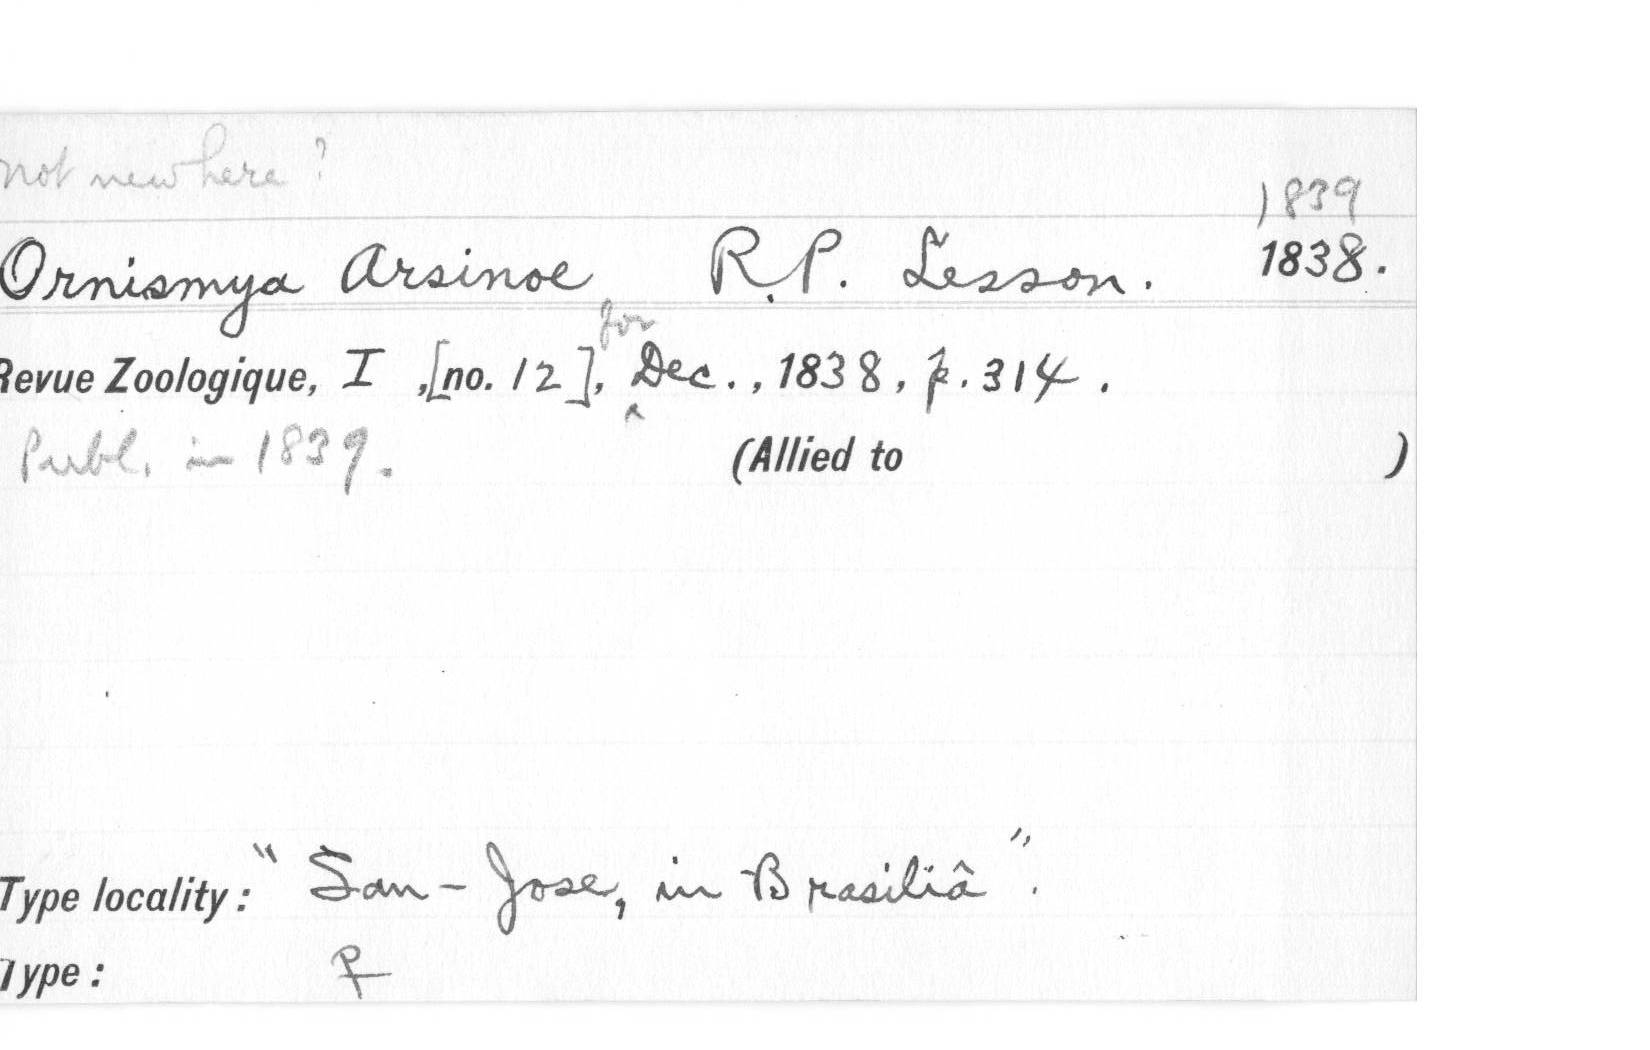 not new here?
1839
Ornismya Arsinoe R.P. Lesson. 1838.
for
Revue Zoologique, I ,[no. 12], Dec., 1838, p. 314.
Publ. in 1839. (Allied to )
Type locality: "San-Jose, in Brasiliâ".
Type: ♀